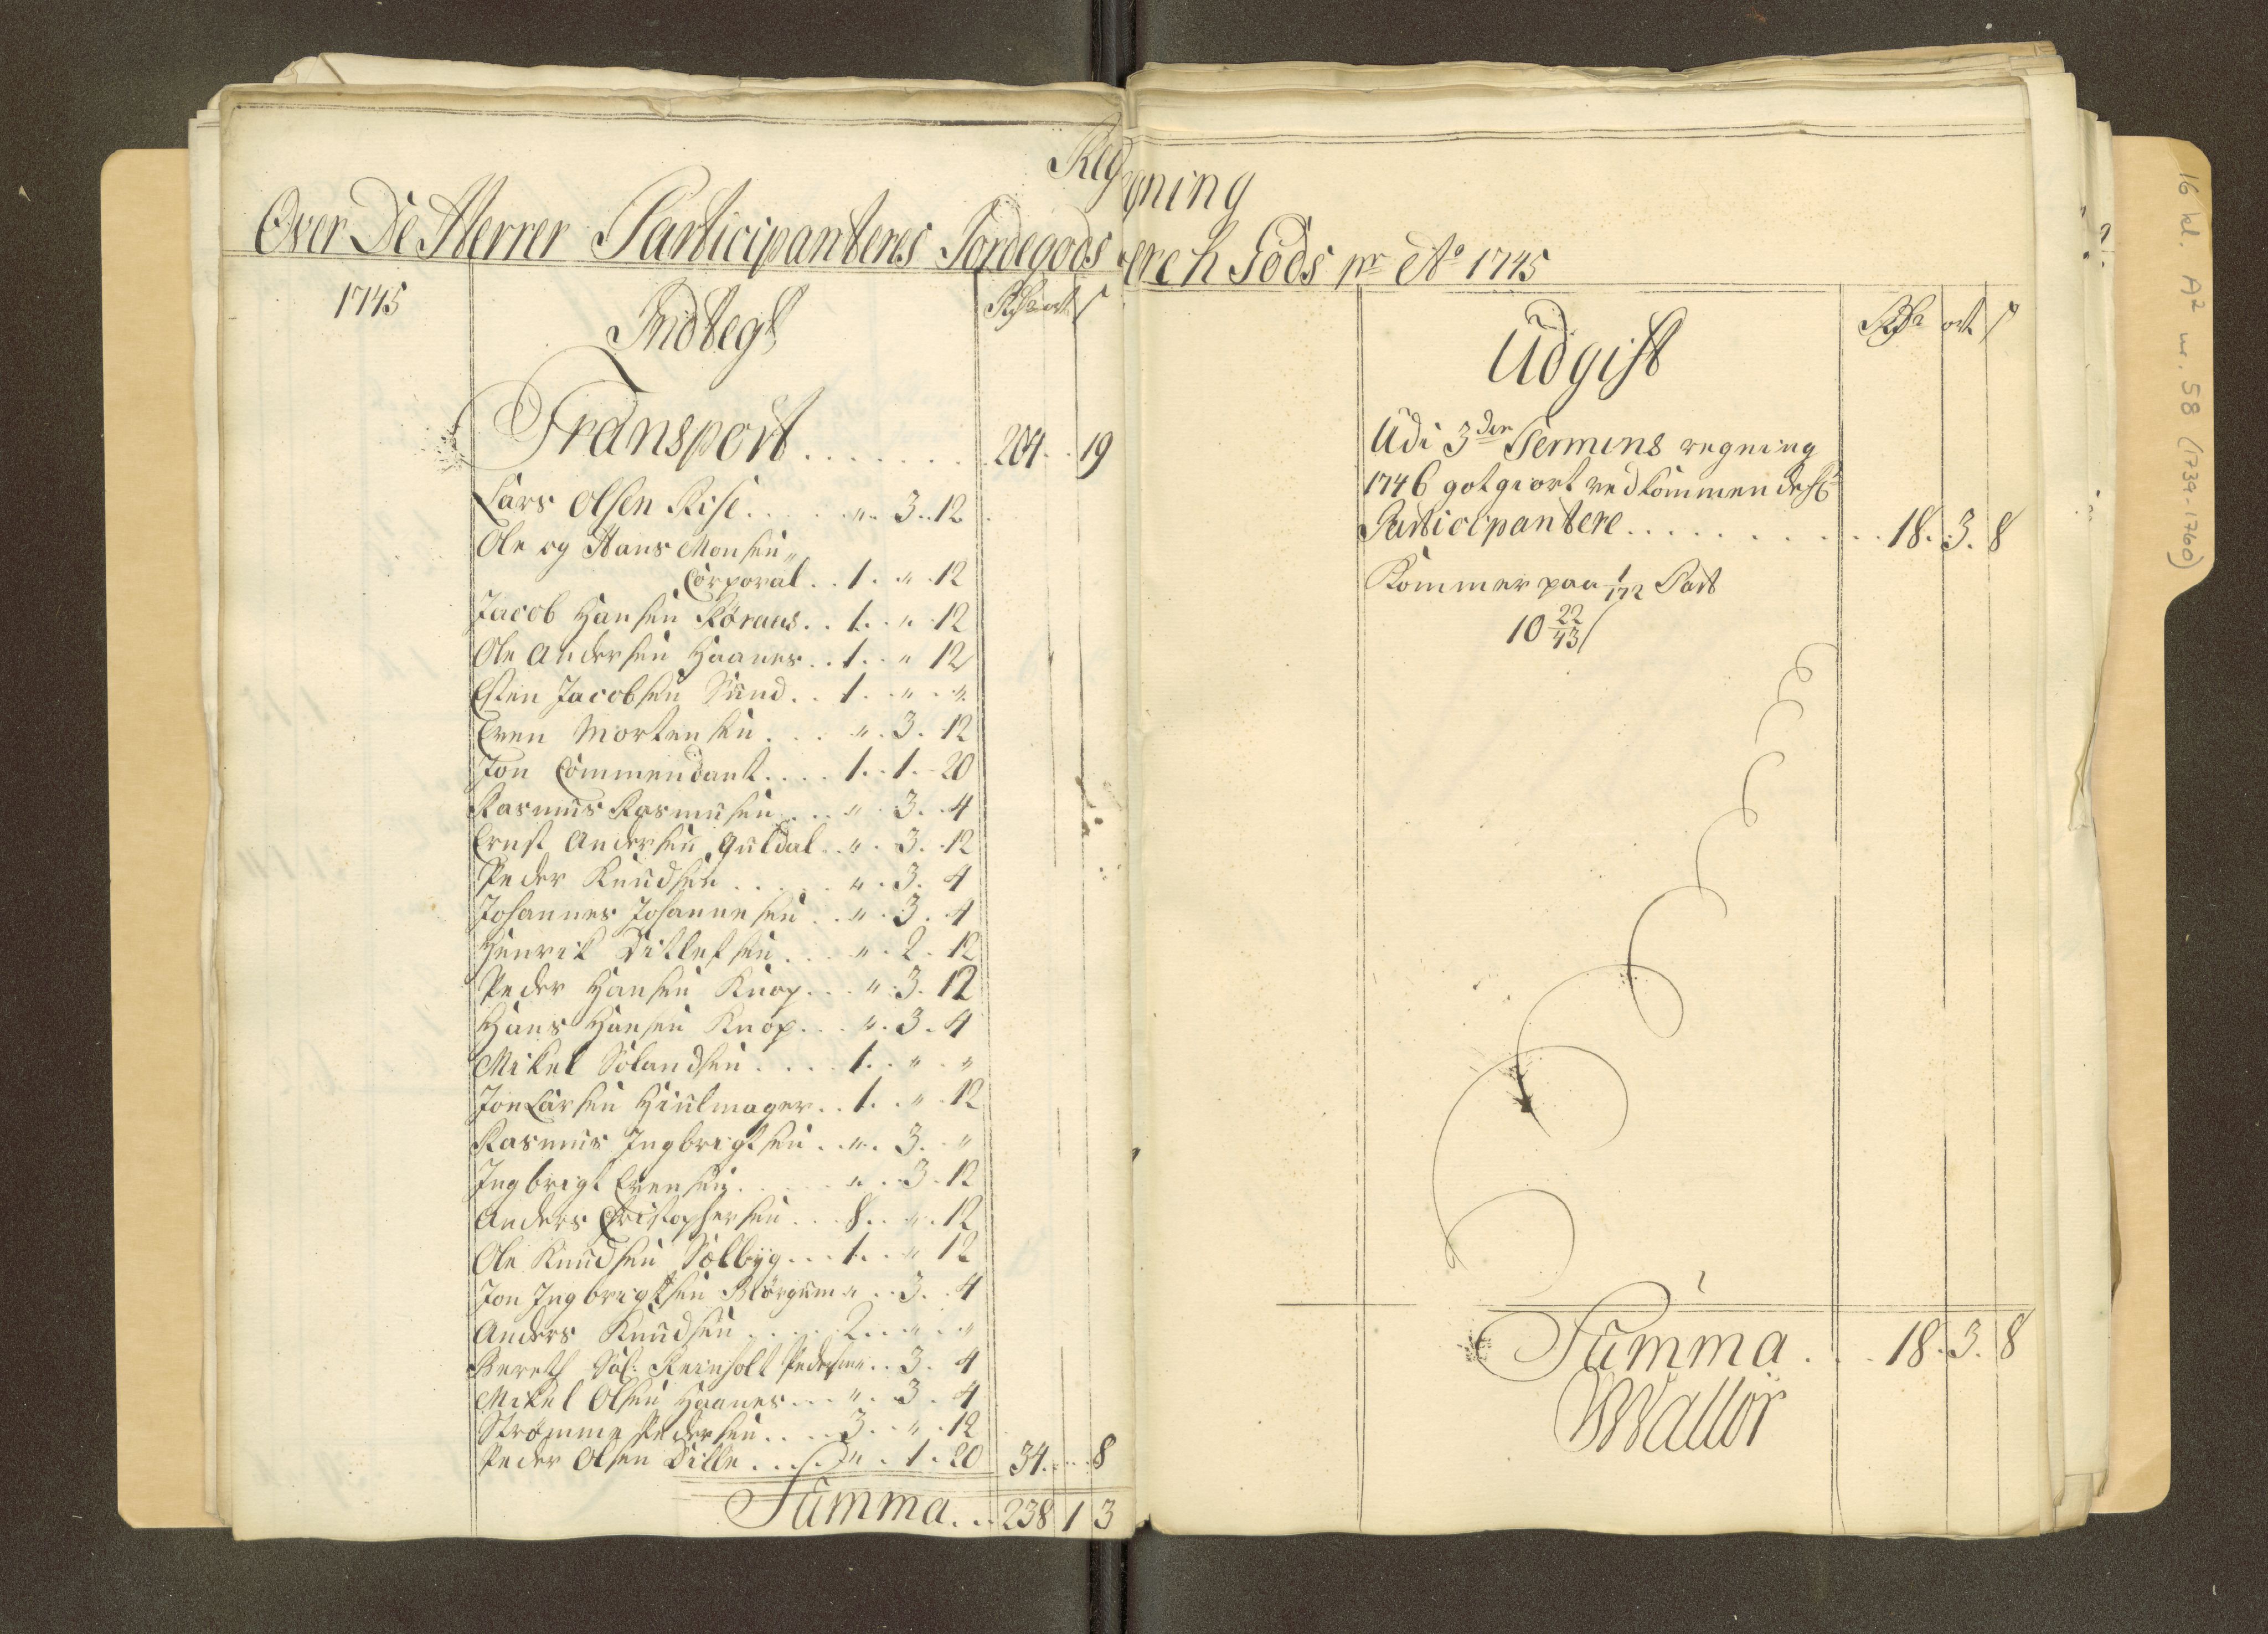 Regning
Over De Herrer Participanteres Jordegods
1745
Indtegt
Rdr ort ß
Transport . . . . . . . 204 . . 19
Lars Olsen Rise . . . . „ . 3 . 12
Ole og Hans Monsen
Corporal . . 1 . „ . 12
Jacob Hansen Røraas . . 1 . „ . 12
Ole Andersen Haanes . . 1 . „ 12
Esten Jacobsen Sund . . 1 . „ . „
Even Mortensen . . . „ . 3 . 12
Jon Commendant . . . . 1 . . 1 . . 20
Rasmus Rasmusen . . . „ . 3 . . 4
Ernst Andersen Guldal . . „ . 3 . . 12
Peder Knudsen . . . . . „ . 3 . 4
Johannes Johannesen . . „ . 3 . 4
Henrik Ditlefsen . . . „ . 2 . 12
Peder Hansen Knop . . . „ . 3 . 12
Hans Hansen Knop . . . „ . 3 . 4
Mikel Solandsen . . . . 1 . „ . „
Jon Larsen Hiulmager . . 1 . „ . 12
Rasmus Ingbrigtsen . . „ . 3 . „
Ingbrigt Evensen . . . . „ . . 3 . 12
Anders Christophersen . . . 8 . . „ . 12
Ole Knudsen Sælbyg . . . 1 . . „ 12
Jon Ingbrigtsen „ . . 3 . . 4
Anders Knudsen . . . . 2 . . „ . „
Bereth Sal: Reinholt Pedersens . . 3 . 4
Mikel Olsen Haanes . . . „ . 3 . 4
Strømme Pedersen . . . . 3 . . „ . 12
Peder Olsen Dille . . . . „ . 1 . 20 34 . . . 8
Summa . . 238 1 3
erch Gods pr Ao 1745
Udgift
Rdr ort ß
Udi 3den Termins regning
1746 gotgiort vedkommende H:
Participantere . . . . . . . . . . 18 . 3 . 8
Kommer paa 1/172 Part
10 22/43 ß
Summa . . . 18 . 3 . 8
16 kl. A2 nr. 58 (1739-1760)